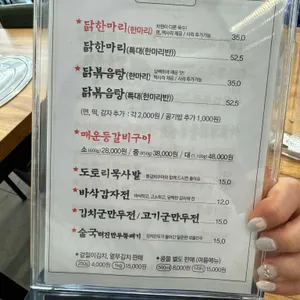 *닭한마리(한마리) 35.0
닭한마리(특대(한마리반)) 52.5
*닭볶음탕(한마리) 35.0
닭볶음탕(특대(한마리반)) 52.5
(면, 떡, 감자 추가 : 각 2,000원 / 공기밥 추가 1,000원)
*매운등갈비구이
소(600g) 28,000원 / 중 38,000원 / 대 48,000원
*도토리묵사발 15.0
*바삭감자전 12.0
*김치군만두전/고기군만두전 15.0
*술국 15.0
겉절이김치, 열무김치 판매
4,000원 1kg 15,000원
콩물 별도 판매 (여름메뉴)
8,000원 15,000원